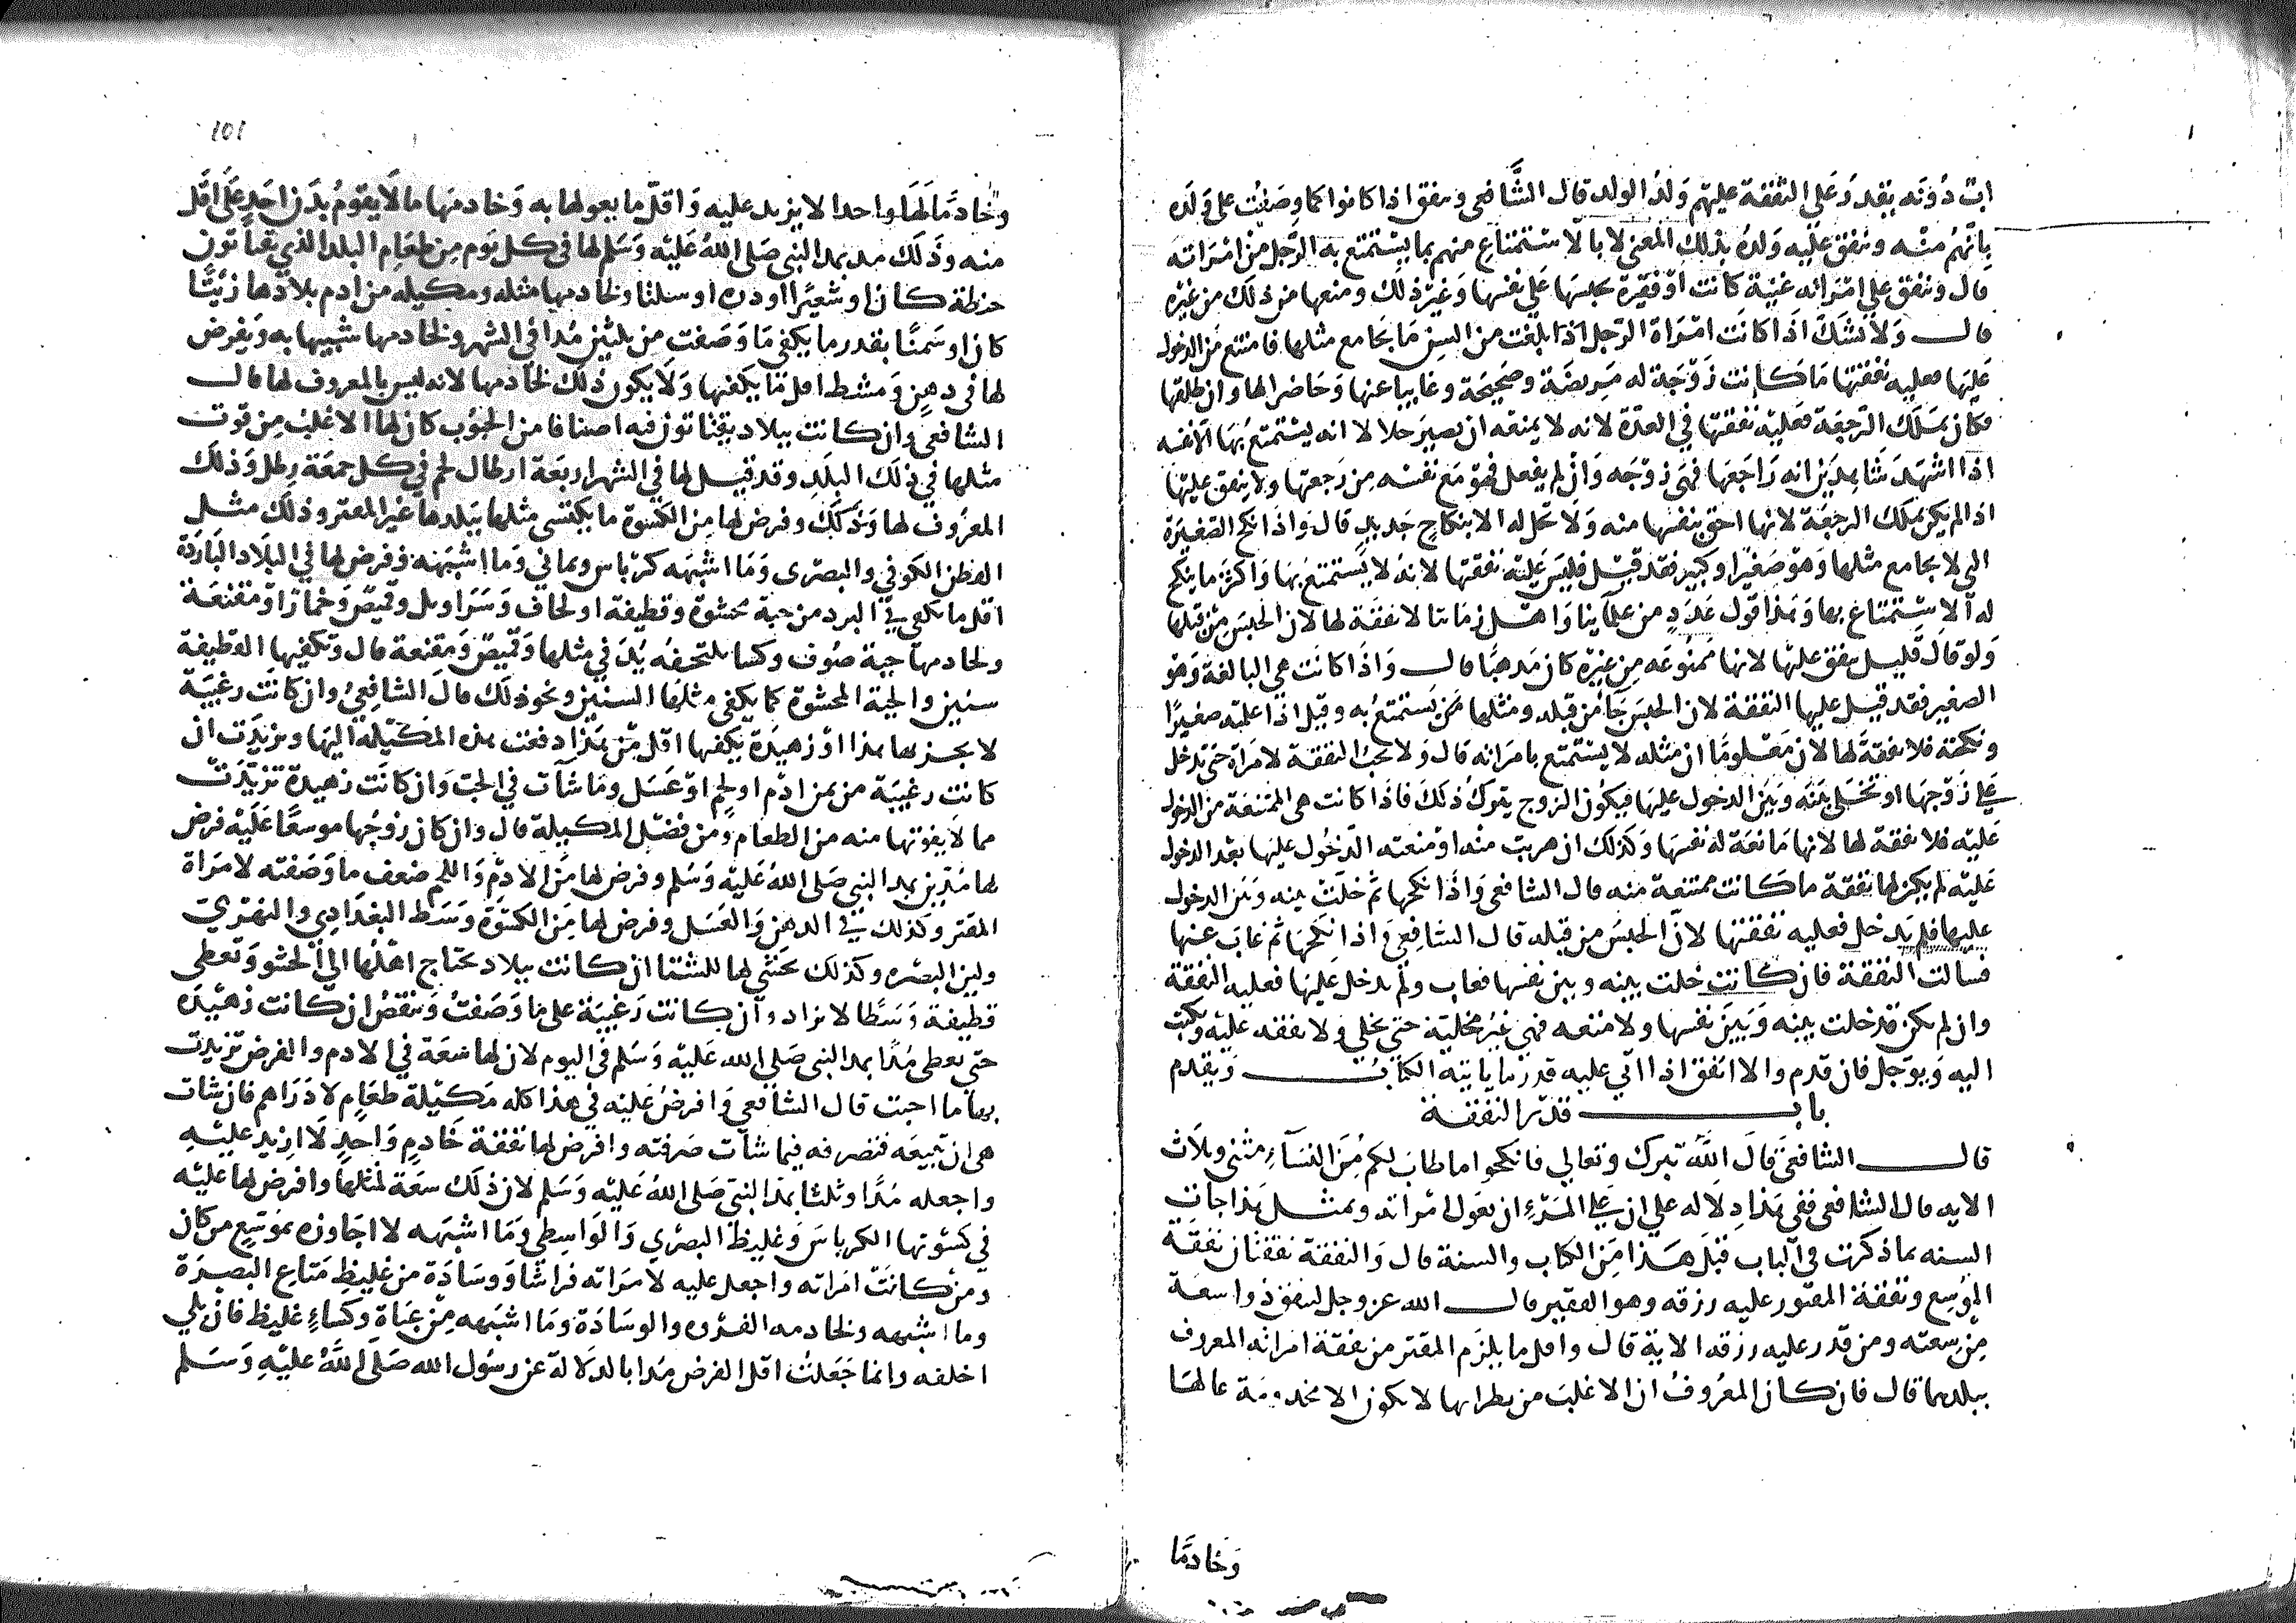 اب دونه بقدر وعلي النفقة عليهم ولد الولد قال الشافعي وينفق اذا كانوا كما وصفت على ولده
بانهم منه وينفق عليه ولده بذلك المعني لا بالاستمتاع منهم بما يستمتع به الرجل من امراته
قال وينفق علي امراته غنية كانت او فقيرة بحبسها علي نفسها وغير ذلك ومنعها من ذلك من غيره
قال ولا شك اذا كانت امراة الرجل اذا بلغت من السن ما يجامع مثلها فامتنع من الدخول
عليها فعليه نفقتها ما كانت زوجة له مريضة وصحيحة وغايبا عنها وحاضرا لها وان طلقها
فكان يملك الرجعة فعليه نفقتها في العدة لانه لا يمنعه ان تصير حلالا له يستمتع بها الا نفسه
اذا اشهد شاهدين انه راجعها فهي زوجه وان لم يفعل فهو مع نفسه من رجعتها ولا ينفق عليها
اذا لم يكن يملك الرجعة لانها احق بنفسها منه ولا تحل له الا بنكاح جديد قال واذا نكح الصغيرة
التي لا يجامع مثلها وهو صغير او كبير فقد قيل فليس عليه نفقتها لانه لا يستمتع بها واكثر ما ينكح
له الاستمتاع بها وهذا قول عدد من علماينا واهل زماننا لا نفقة لها لان الحبس من قبلها
ولو قال قليل ينفق عليها لانها ممنوعه من غيره كان مذهبا قال واذا كانت هي البالغة وهو
الصغير فقد قيل عليها النفقة لان الحبس جا من قبله ومثلها ممن يستمتع به وقيل اذا علمته صغيرا
ونكحته فلا نفقة لها لان معلوما ان مثله لا يستمتع بامراته قال ولا تجب النفقة لامراة حتى تدخل
علي زوجها او تخلي بينه وبين الدخول عليها فيكون الزوج يترك ذلك فاذا كانت هي الممتنعة من الدخول
عليه فلا نفقة لها لانها مانعة له نفسها وكذلك ان هربت منه او منعته الدخول عليها بعد الدخول
عليه لم يكن لها نفقة ما كانت ممتنعة منه قال الشافعي واذا نكحها ثم خلت بينه وبين الدخول
عليها فلم يدخل فعليه نفقتها لان الحبس من قبله قال الشافعي واذا نكحها ثم غاب عنها
فسالت النفقة فان كانت خلت بينه وبين نفسها فغاب ولم يدخل عليها فعليه النفقة
وان لم تكن قد خلت بينه وبين نفسها ولا منعه فهي غير مخلية حتي تخلي ولا نفقه عليه وتكتب
اليه ويوجل فان قدم والا انفق اذا اتي عليه قدر ما ياتيه الكتاب ويقدم
باب قدر النفقة
قال الشافعي قال الله تبرك وتعالي فانكحوا ما طاب لكم من النساء مثنى وثلاث
الايه قال الشافعي ففي هذا دلاله علي ان علي المرء ان يعول امراته وبمثل هذا جات
السنه بما ذكرت في الباب قبل هذا من الكتاب والسنة قال والنفقة نفقتان نفقة
الموسع ونفقة المقتور عليه رزقه وهو الفقير قال الله عز وجل لينفق ذو اسعة
من سعته ومن قدر عليه رزقه الاية قال واقل ما يلزم المقتر من نفقة امراته المعروف
ببلدهما قال فان كان المعروف ان الاغلب من نظرايها لا يكون الا مخدومة عالها
وخادما
101
وخادما لها واحدا لا يزيد عليه واقل ما يعولها به وخادمها ما لا يقوم بدن احد على اقل
منه وذلك مد بمد النبي صلى الله عليه وسلم لها في كل يوم من طعام البلد الذي يقتاتون
حنطة كان او شعيرا او دره او سلتا ولخادمها مثله ومكيله من ادم بلادها زيتا
كان او سمنا بقدر ما يكفي ما وصفت من ثلثين مدا في الشهر ولخادمها شبيها به ويفرض
لها في دهن ومشط اقل ما يكفيها ولا يكون ذلك لخادمها لانه ليس بالمعروف لها قال
الشافعي وان كانت ببلاد يقتاتون فيه اصنافا من الحبوب كان لها الاغلب من قوت
مثلها في ذلك البلد وقد قيل لها في الشهر اربعة ارطال لحم في كل جمعة رطل وذلك
المعروف لها وذلك وفرض لها من الكسوة ما يكتسى مثلها ببلدها غير المقتر وذلك مثل
القطن الكوفي والبصرى وما اشبهه كرباس ويماني وما اشبهه وفرض لها في البلاد الباردة
اقل ما يكفي في البرد من جبة محشوة وقطيفة او لحاف وسراويل وقميص وخمار او مقنعة
ولخادمها جبة صوف وكسا تلتحفه يدفي مثلها وقميص ومقنعة قال وتكفيها القطيفة
سنين والجبة المحشوة كما يكفي مثلها السنين ونحو ذلك قال الشافعي وان كانت رغيبة
لا يجزيها هذا او زهيدة يكفيها اقل من هذا دفعت هذه المكيلة اليها وتزيدت ان
كانت رغيبة من ثمن ادم او لحم او عسل وما شات في الحب وان كانت زهيدة تزيدت
مما لا يفوتها منه من الطعام ومن فضل المكيلة قال وان كان زوجها موسعا عليه فرض
لها مدين بمد النبي صلى الله عليه وسلم وفرض لها من الادم واللحم ضعف ما وصفته لامراة
المقتر وكذلك في الدهن والعسل وفرض لها من الكسوة وسط البغدادي والهروي
ولين البصره وكذلك تحشى لها للشتا ان كانت ببلاد يحتاج اهلها الي الحشو وتعطى
قطيفة وسطا لا تزاد وان كانت رغيبة على ما وصفت وتنقص ان كانت زهيدة
حتي تعطى مدا بمد النبي صلى الله عليه وسلم في اليوم لان لها سعة في الادم والفرض تزيدت
بها ما احبت قال الشافعي وافرض عليه في هذا كله مكيلة طعام لا دراهم فان شات
هي ان تبيعه فتصرفه فيما شات صرفته وافرض لها نفقة خادم واحد لا ازيد عليه
واجعله مدا وثلثا بمد النبي صلى الله عليه وسلم لان ذلك سعة لمثلها وافرض لها عليه
في كسوتها الكرباس وغليظ البصري والواسطي وما اشبهه لا اجاوزه بموسع من كان
ومن كانت امراته واجعل عليه لامراته فراشا ووسادة من غليظ متاع البصرة
وما اشبهه ولخادمه الفروه والوسادة وما اشبهه من عباة وكساء غليظ فان بلي
اخلفه وانما جعلت اقل الفرض مدا بالدلالة عن رسول الله صلى الله عليه وسلم